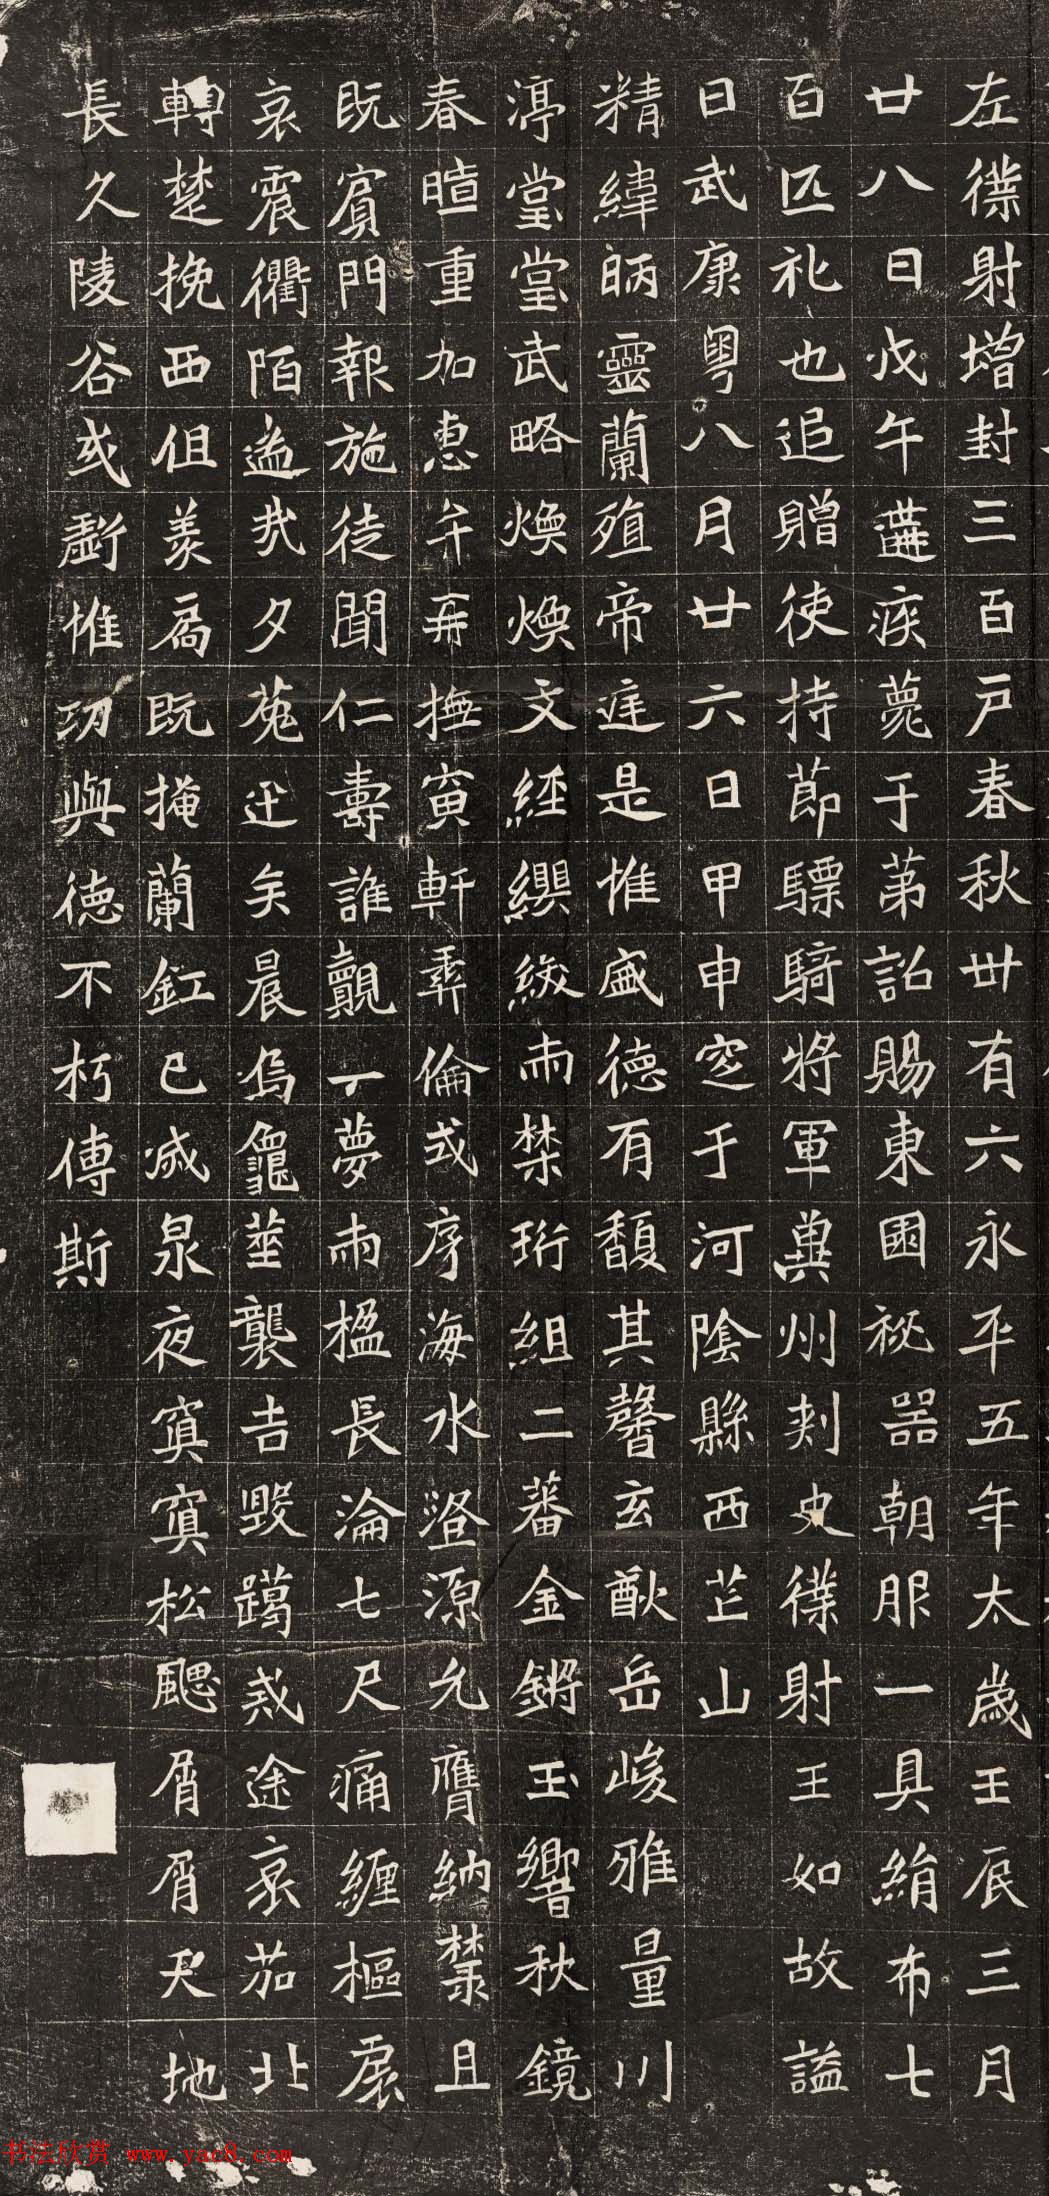 左僕射增封三百戶春秋卅有六永平五年太歲壬辰三月
廿八日戊午遘疾薨于苐詔賜東國祕器朝服一具絹布七
百匹礼也追贈使持節驃騎將軍兾州刾史僕射王如故謚
日武康粵八月廿六日甲申窆于河陰縣西芒山
精緯昞靈蘭殖帝莛是惟盛德有馥其馨玄猷岳峻雅量川
渟堂堂武略煥煥文經纓緌兩禁珩組二蕃金鏘玉響秋鏡
春暄重加惠弁再撫寅軒彞倫或序海水澄源允膺納禁且
既賔門報施徒聞仁壽誰覿一丁夢兩楹長淪七尺痛纏樞扆
哀震衢陌逝夕菟迁矣晨烏龜莁襲吉毀躅戒途哀茄北
轉楚挽西伹羡扄既掩蘭釭已滅泉夜寘寘松颸屑屑天地
長久陵谷或虧惟功與德不朽傳斯
书法欣赏 www.yac8.com